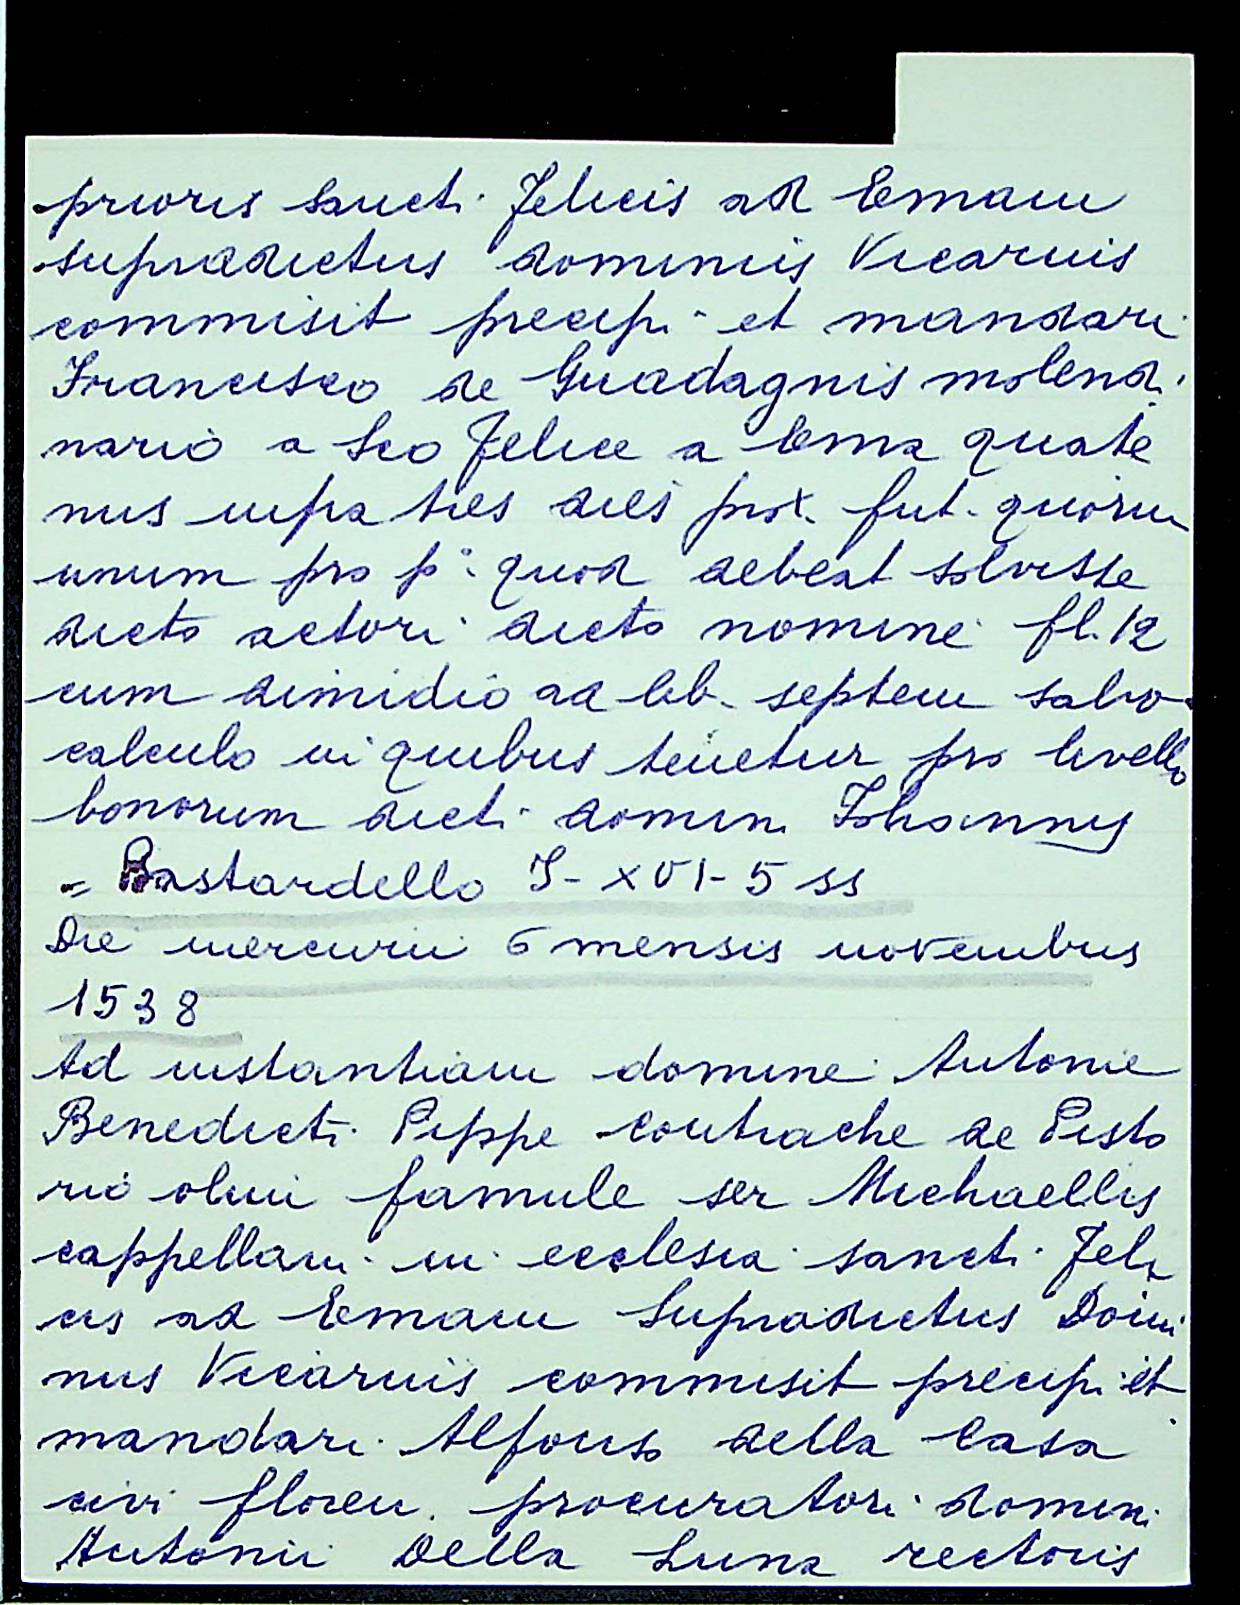 prioris sancti Felicis ad Emam
supradictus dominus Vicarius
commisit precipi et mandari
Francisco de Guadagnis molendi
nario a Sco Felice a Ema quate
nus infra tres dies prox. fut. quorum
unum pro p°: quod debeat solvisse
dicto actori dicto nomine fl. 12
cum dimidio ad lib. septem salvo
calculo in quibus tenetur pro livello
bonorum dicti domini Iohannis
= Bastardello I - XVI - 5 ss
Die mercurii 6 mensis novembris
1538
Ad instantiam domine Antonie
Benedicti Pippe contrache de Pisto
rio olim famule ser Michaellis
cappellani in ecclesia sancti Feli
cis ad Emam Supradictus Domi
nus Vicarius commisit precipi et
mandari Alfonso della Casa
civi floren. procuratori domini
Antonii Della Luna rectoris